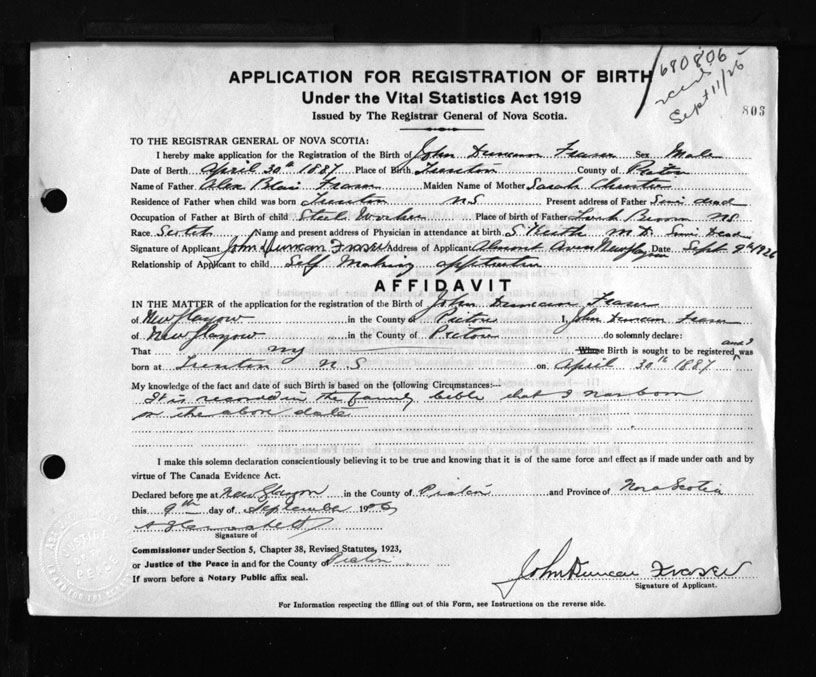 680806
recd
Sept 11/26
803
APPLICATION FOR REGISTRATION OF BIRTH
Under the Vital Statistics Act 1919
Issued by The Registrar General of Nova Scotia.
TO THE REGISTRAR GENERAL OF NOVA SCOTIA:
I hereby make application for the Registration of the Birth of John Duncan Fraser Sex Male
Date of Birth April 30th 1887 Place of Birth Trenton County of Pictou
Name of Father Alex Blair Fraser Maiden Name of Mother Sarah Christie
Residence of Father when child was born Trenton NS Present address of Father Since dead
Occupation of Father at Birth of child Steel Worker Place of birth of Father NS
Race Scotch Name and present address of Physician in attendance at birth S Keith M.D. Since Dead
Signature of Applicant John Duncan Fraser Address of Applicant Almont Ave New Glasgow Date Sept 9th 1926
Relationship of Applicant to child Self Making
AFFIDAVIT
IN THE MATTER of the application for the registration of the Birth of John Duncan Fraser
of New Glasgow in the County of Pictou I, John Duncan Fraser
of New Glasgow in the County of Pictou do solemnly declare:
That my Whose Birth is sought to be registered and I was
born at Trenton N S on April 30th 1887
My knowledge of the fact and date of such Birth is based on the following Circumstances:—
It is record in the family bible that I was born
on the above date
I make this solemn declaration conscientiously believing it to be true and knowing that it is of the same force and effect as if made under oath and by
virtue of The Canada Evidence Act.
Declared before me at New Glasgow in the County of Pictou and Province of Nova Scotia
this 9th day of September 1926
Signature of
Commissioner under Section 5, Chapter 38, Revised Statutes, 1923,
or Justice of the Peace in and for the County of Pictou
If sworn before a Notary Public affix seal.
John Duncan Fraser
Signature of Applicant.
For Information respecting the filling out of this Form, see Instructions on the reverse side.